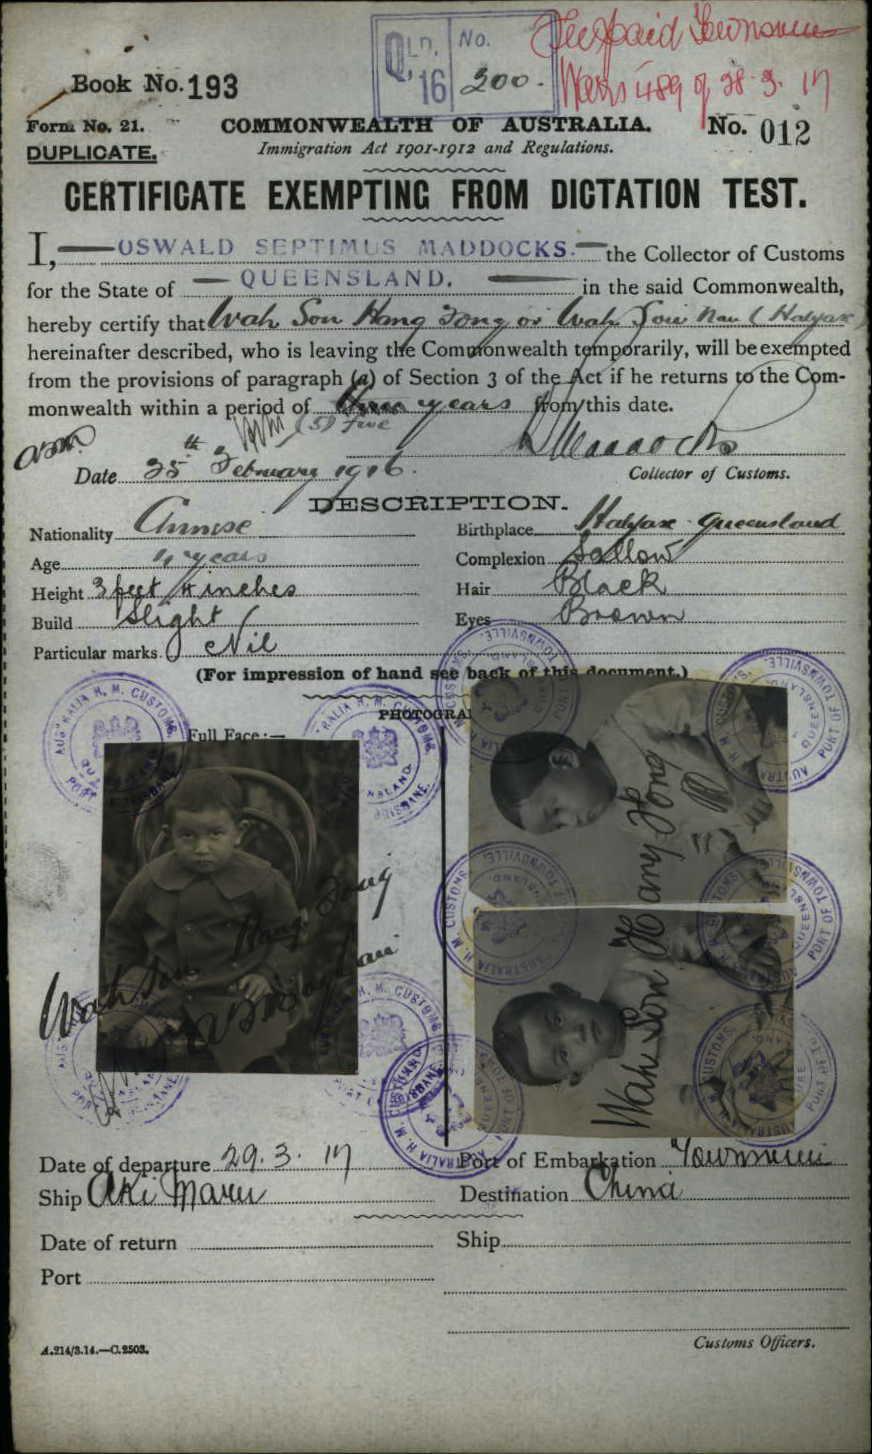 QLD. No.
16 200.
Fee paid Townsville
489 of 28.3.17
Book No. 193
Form No. 21.
COMMONWEALTH OF AUSTRALIA.
No. 012
DUPLICATE.
Immigration Act 1901-1912 and Regulations.
CERTIFICATE EXEMPTING FROM DICTATION TEST.
I, OSWALD SEPTIMUS MADDOCKS. the Collector of Customs
for the State of QUEENSLAND. in the said Commonwealth,
hereby certify that Wah Son Hang Tong or Wah (Halifax)
hereinafter described, who is leaving the Commonwealth temporarily, will be exempted
from the provisions of paragraph (a) of Section 3 of the Act if he returns to the Com-
monwealth within a period of three years from this date.
(5) Five
Maddocks
Date 25th February 1916.
Collector of Customs.
DESCRIPTION.
Nationality Chinese
Birthplace Halifax Queensland
Age 4 years
Complexion Sallow
Height 3 feet 4 inches
Hair Black
Build Slight
Eyes Brown
Particular marks Nil
(For impression of hand see back of this document.)
PHOTOGRA
Full Face:—
Wah Son Hang Tong
Wah Son Hang Tong
AUSTRALIA H. M. CUSTOMS
QUEENSLAND
PORT OF BRISBANE
H. M. CUSTOMS AUSTRALIA
QUEENSLAND
PORT OF TOWNSVILLE
Date of departure 29.3.17
Port of Embarkation Townsville
Ship Aki Maru
Destination China
Date of return
Ship
Port
A.214/3.14.—C.2503.
Customs Officers.